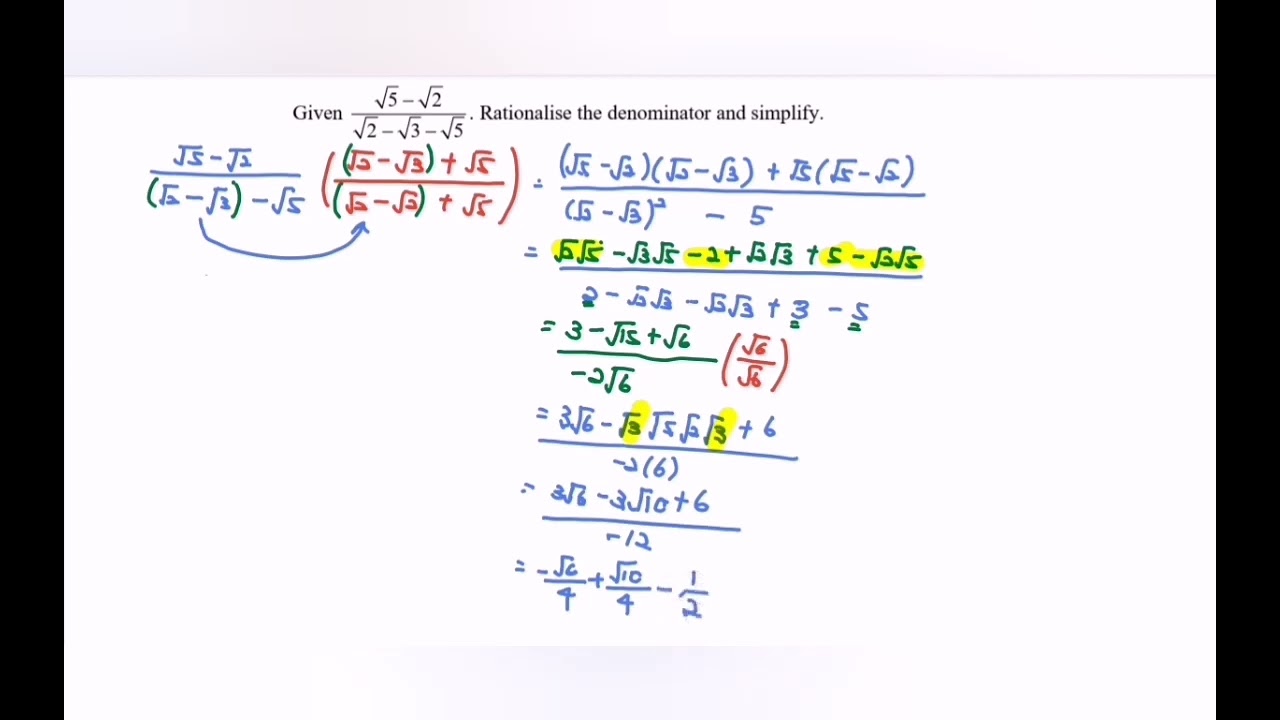 Given (√5 − √2)/(√2 − √3 − √5). Rationalise the denominator and simplify.
(√5 − √2)/((√2 − √3) − √5) (((√2 − √3) + √5)/((√2 − √3) + √5)) = ((√5 − √2)(√2 − √3) + √5(√5 − √2))/((√2 − √3)² − 5)
= (√2√5 − √3√5 − 2 + √2√3 + 5 − √2√5)/(2 − √2√3 − √2√3 + 3 − 5)
= (3 − √15 + √6)/(−2√6) (√6/√6)
= (3√6 − √3√5√2√3 + 6)/(−2(6))
= (3√6 − 3√10 + 6)/(−12)
= −√6/4 + √10/4 − 1/2